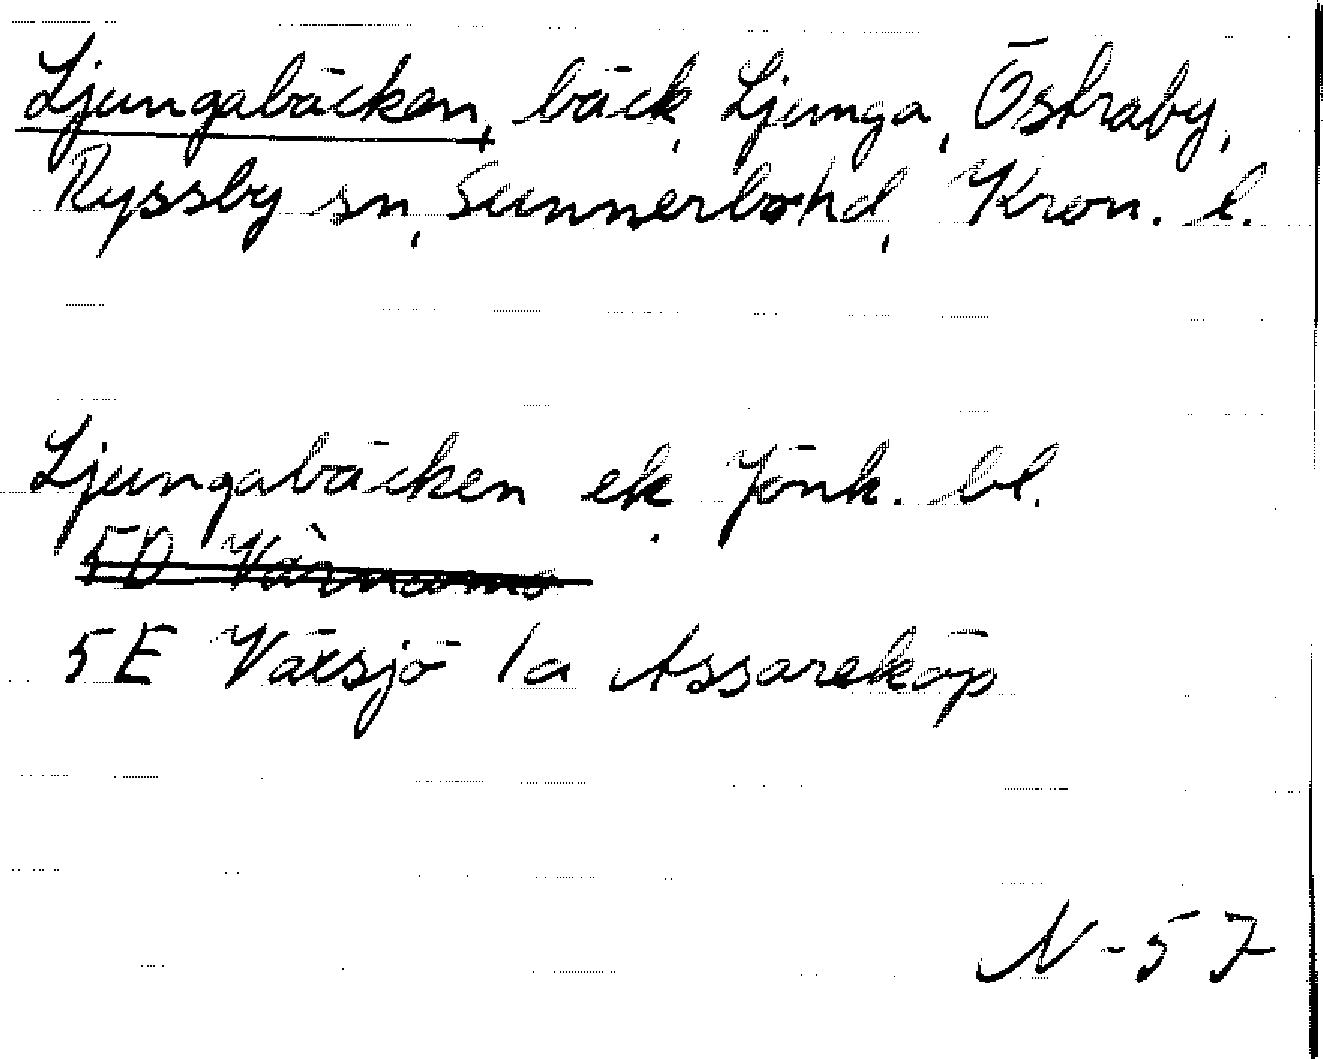 Ljungabäcken, bäck, Ljunga, Östraby,
Ryssby sn, Sunnerbo hd, Kron. l.
Ljungabäcken ek. Jönk. bl.
5D Värnamo
5E Växsjö 1a Assarekåp
N-57